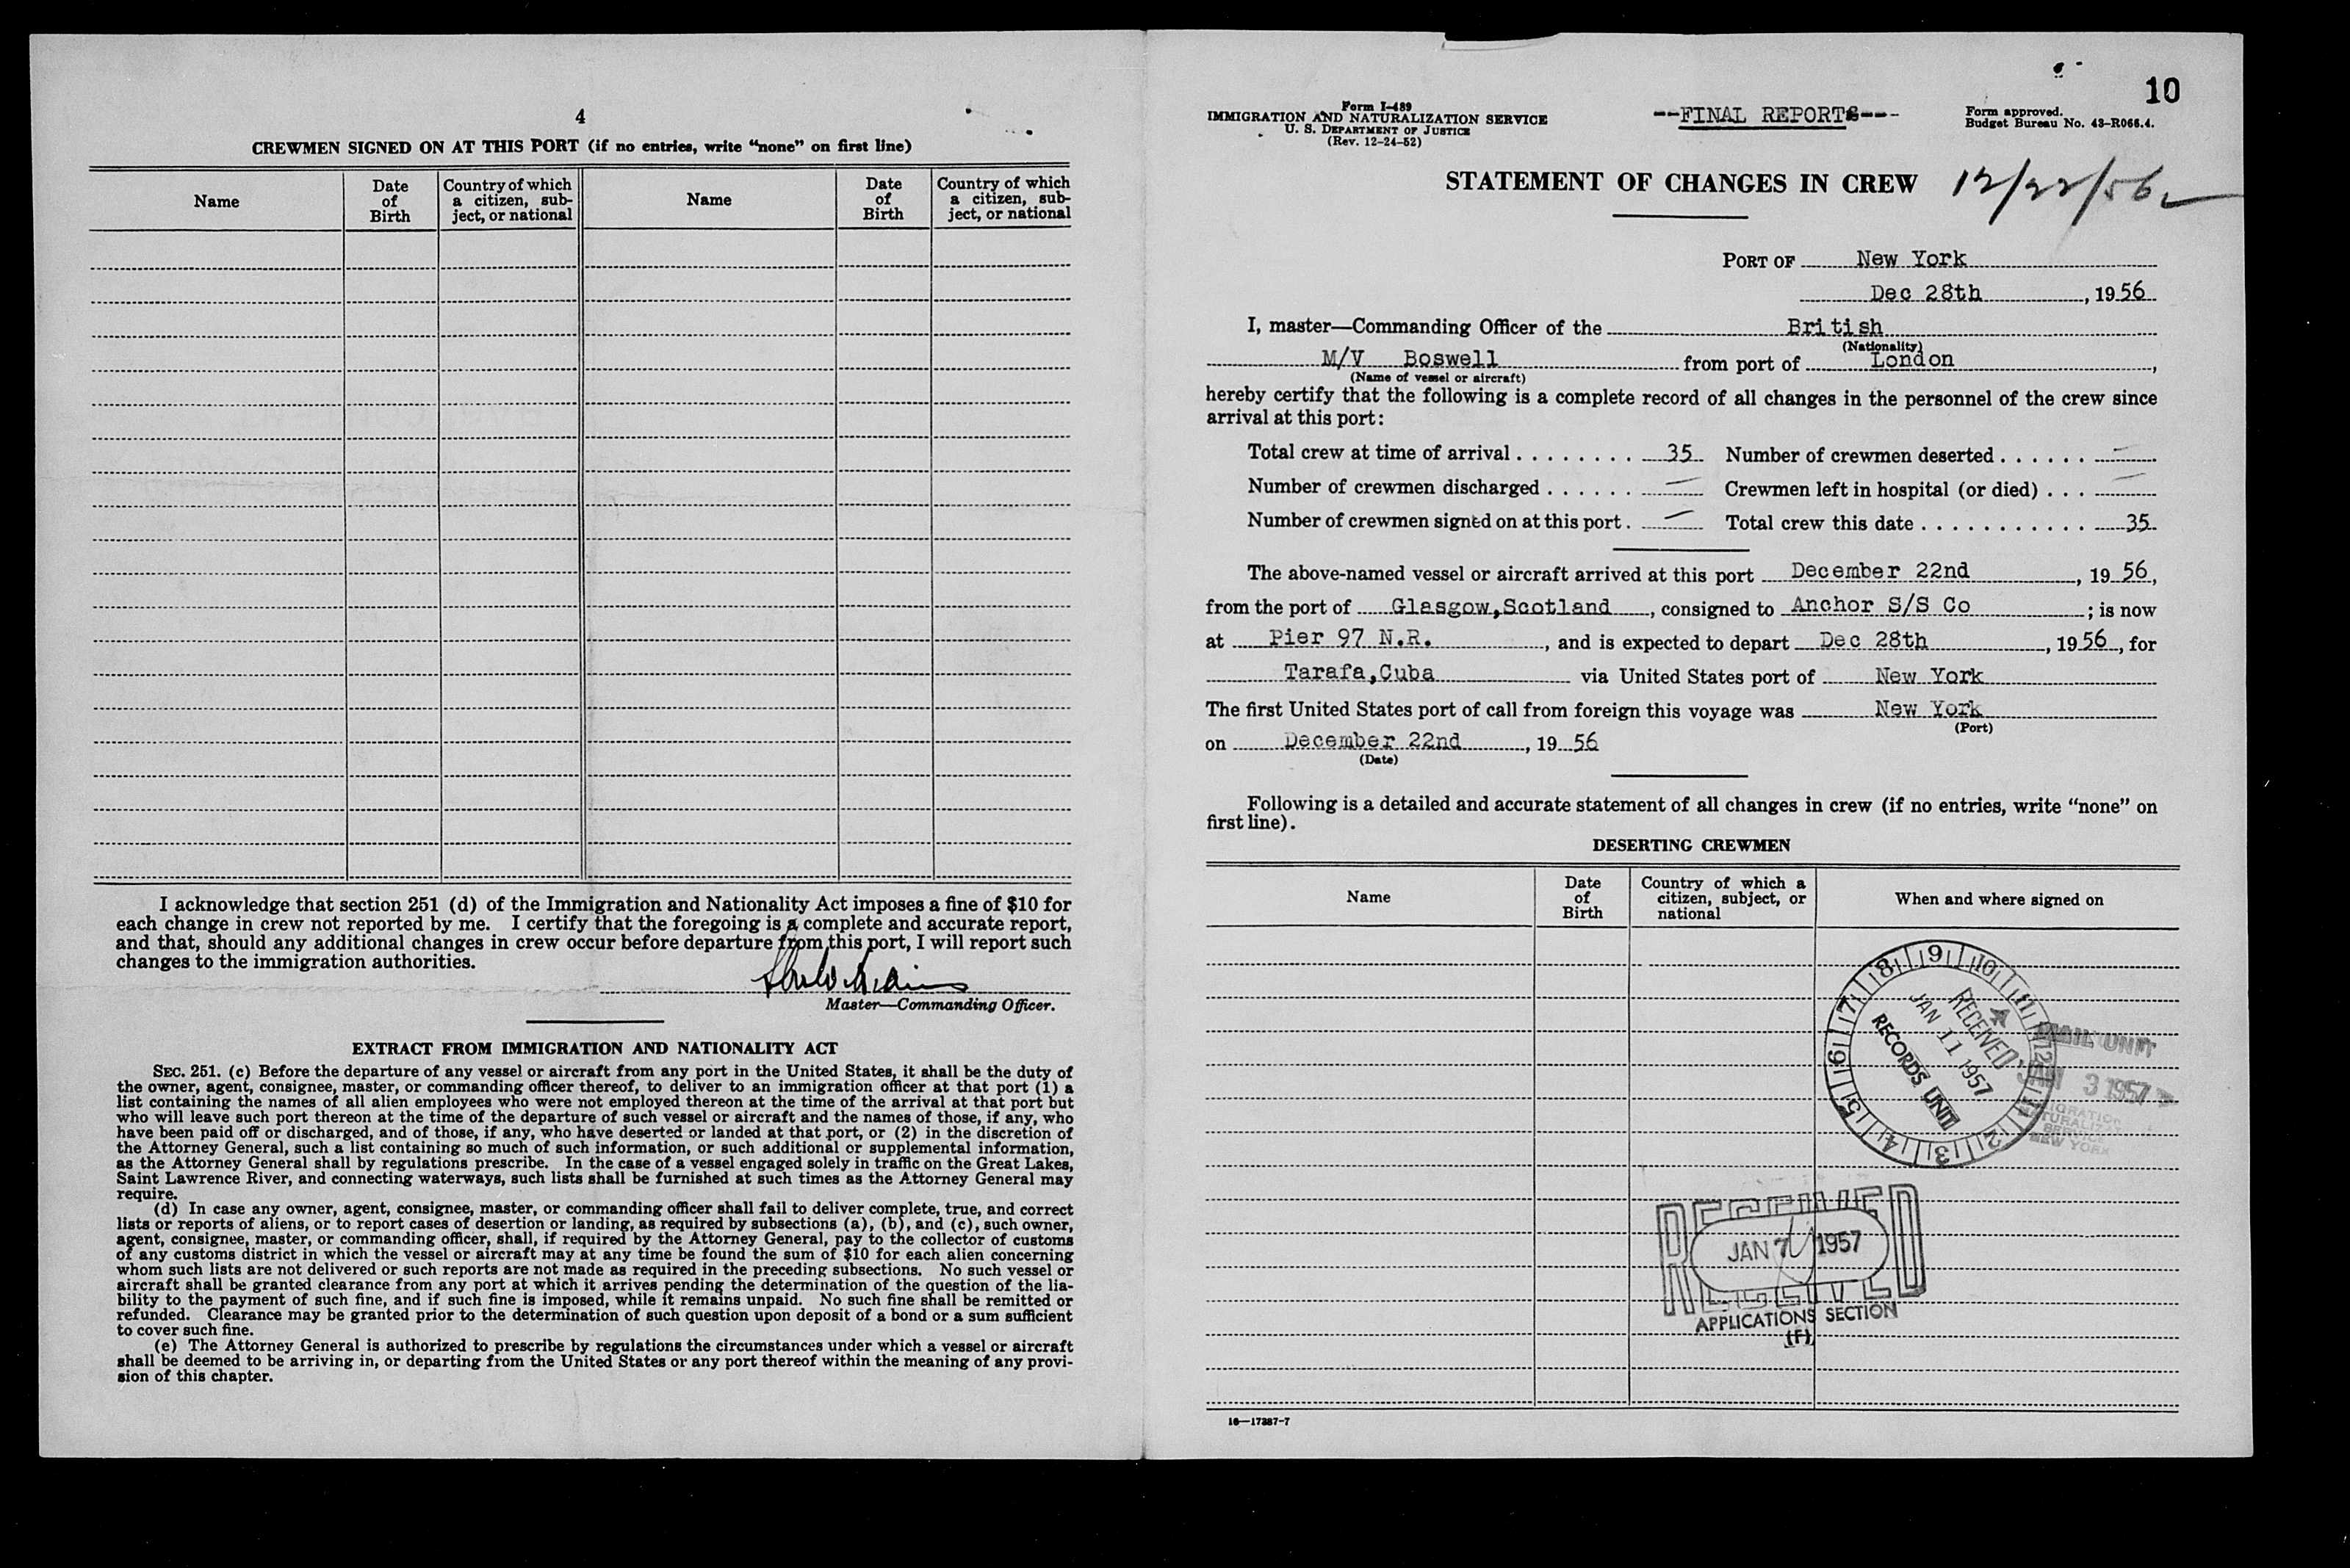 4
CREWMEN SIGNED ON AT THIS PORT (if no entries, write "none" on first line)
Name
Date of Birth
Country of which a citizen, sub-ject, or national
Name
Date of Birth
Country of which a citizen, sub-ject, or national
I acknowledge that section 251 (d) of the Immigration and Nationality Act imposes a fine of $10 for
each change in crew not reported by me. I certify that the foregoing is a complete and accurate report,
and that, should any additional changes in crew occur before departure from this port, I will report such
changes to the immigration authorities.
Master—Commanding Officer.
EXTRACT FROM IMMIGRATION AND NATIONALITY ACT
SEC. 251. (c) Before the departure of any vessel or aircraft from any port in the United States, it shall be the duty of
the owner, agent, consignee, master, or commanding officer thereof, to deliver to an immigration officer at that port (1) a
list containing the names of all alien employees who were not employed thereon at the time of the arrival at that port but
who will leave such port thereon at the time of the departure of such vessel or aircraft and the names of those, if any, who
have been paid off or discharged, and of those, if any, who have deserted or landed at that port, or (2) in the discretion of
the Attorney General, such a list containing so much of such information, or such additional or supplemental information,
as the Attorney General shall by regulations prescribe. In the case of a vessel engaged solely in traffic on the Great Lakes,
Saint Lawrence River, and connecting waterways, such lists shall be furnished at such times as the Attorney General may
require.
(d) In case any owner, agent, consignee, master, or commanding officer shall fail to deliver complete, true, and correct
lists or reports of aliens, or to report cases of desertion or landing, as required by subsections (a), (b), and (c), such owner,
agent, consignee, master, or commanding officer, shall, if required by the Attorney General, pay to the collector of customs
of any customs district in which the vessel or aircraft may at any time be found the sum of $10 for each alien concerning
whom such lists are not delivered or such reports are not made as required in the preceding subsections. No such vessel or
aircraft shall be granted clearance from any port at which it arrives pending the determination of the question of the lia-
bility to the payment of such fine, and if such fine is imposed, while it remains unpaid. No such fine shall be remitted or
refunded. Clearance may be granted prior to the determination of such question upon deposit of a bond or a sum sufficient
to cover such fine.
(e) The Attorney General is authorized to prescribe by regulations the circumstances under which a vessel or aircraft
shall be deemed to be arriving in, or departing from the United States or any port thereof within the meaning of any provi-
sion of this chapter.
10
Form I-489
IMMIGRATION AND NATURALIZATION SERVICE
U. S. DEPARTMENT OF JUSTICE
(Rev. 12-24-52)
--FINAL REPORTS---
Form approved.
Budget Bureau No. 43-R066.4.
STATEMENT OF CHANGES IN CREW 12/22/56
PORT OF New York
Dec 28th, 1956
I, master—Commanding Officer of the British
(Nationality)
M/V Boswell from port of London,
(Name of vessel or aircraft)
hereby certify that the following is a complete record of all changes in the personnel of the crew since
arrival at this port:
Total crew at time of arrival . . . . . . . . 35 Number of crewmen deserted . . . . . . —
Number of crewmen discharged . . . . . . — Crewmen left in hospital (or died) . . . —
Number of crewmen signed on at this port . — Total crew this date . . . . . . . . . . . 35
The above-named vessel or aircraft arrived at this port December 22nd, 19 56,
from the port of Glasgow,Scotland, consigned to Anchor S/S Co; is now
at Pier 97 N.R., and is expected to depart Dec 28th, 1956, for
Tarafa,Cuba via United States port of New York
The first United States port of call from foreign this voyage was New York
(Port)
on December 22nd, 19 56
(Date)
Following is a detailed and accurate statement of all changes in crew (if no entries, write "none" on
first line).
DESERTING CREWMEN
Name
Date of Birth
Country of which a citizen, subject, or national
When and where signed on
8 9 10 11 12 1 2 3 4 5 6 7
RECEIVED
JAN 11 1957
RECORDS UNIT
MAIL UNIT
JAN 3 1957
NEW YORK
RECEIVED
JAN 7 1957
RECEIVED
APPLICATIONS SECTION
(F)
16—17387-7